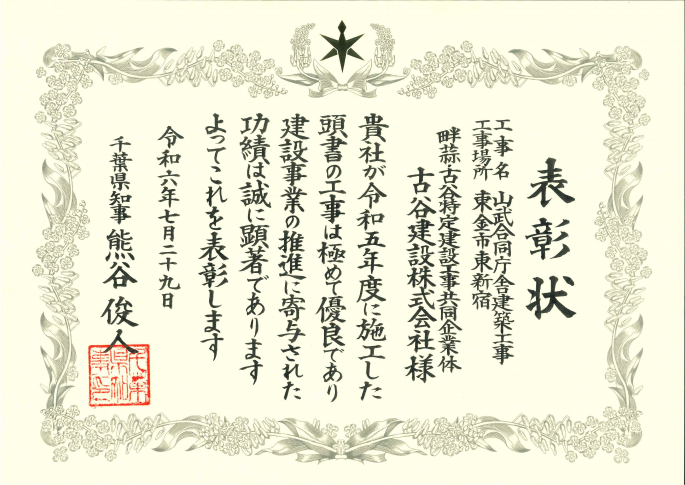 表彰状
工事名 山武合同庁舎建築工事
工事場所 東金市東新宿
畔蒜・古谷特定建設工事共同企業体
古谷建設株式会社様
貴社が令和五年度に施工した
頭書の工事は極めて優良であり
建設事業の推進に寄与された
功績は誠に顕著であります
よってこれを表彰します
令和六年七月二十九日
千葉県知事 熊谷俊人